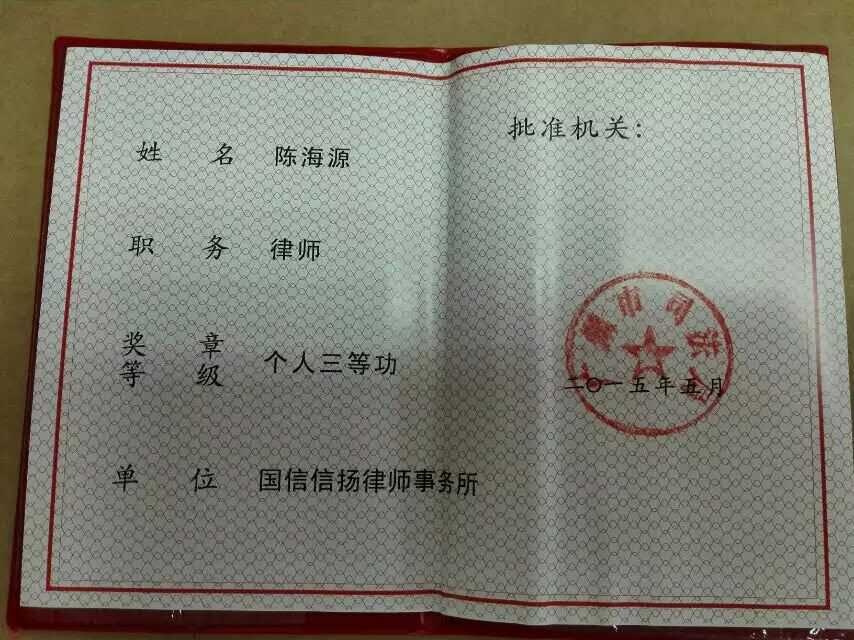 姓 名 陈海源
职 务 律师
奖章等级 个人三等功
单 位 国信信扬律师事务所
批准机关：
广州市司法局
二〇一五年五月